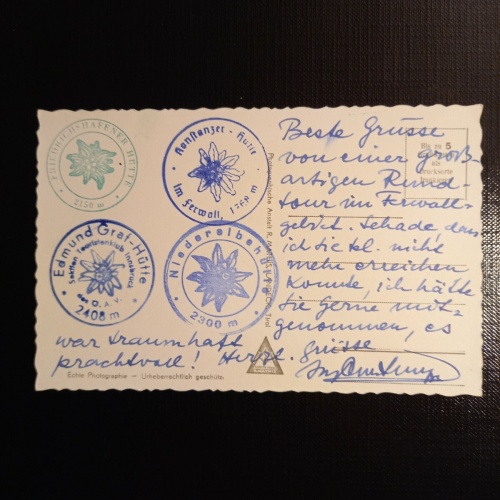 FRIEDRICHSHAFENER HÜTTE
2150 m
Konstanzer - Hütte
im Ferwall, 1768 m
Edmund Graf-Hütte
Sektion Touristenklub Innsbruck
des Ö. A. V.
2408 m
Niederelbehütte
2300 m
Beste Grüsse
von einer groß-
artigen Rund-
tour im Ferwall-
gebiet. Schade, dass
ich Sie tel. nicht
mehr erreichen
konnte, ich hätte
Sie gerne mit-
genommen, es
war traumhaft
prachtvoll! Herzl. Grüsse
Bis zu 5
als
Drucksorte
Photographische Anstalt R.
Tirol
Echte Photographie — Urheberrechtlich geschützt.